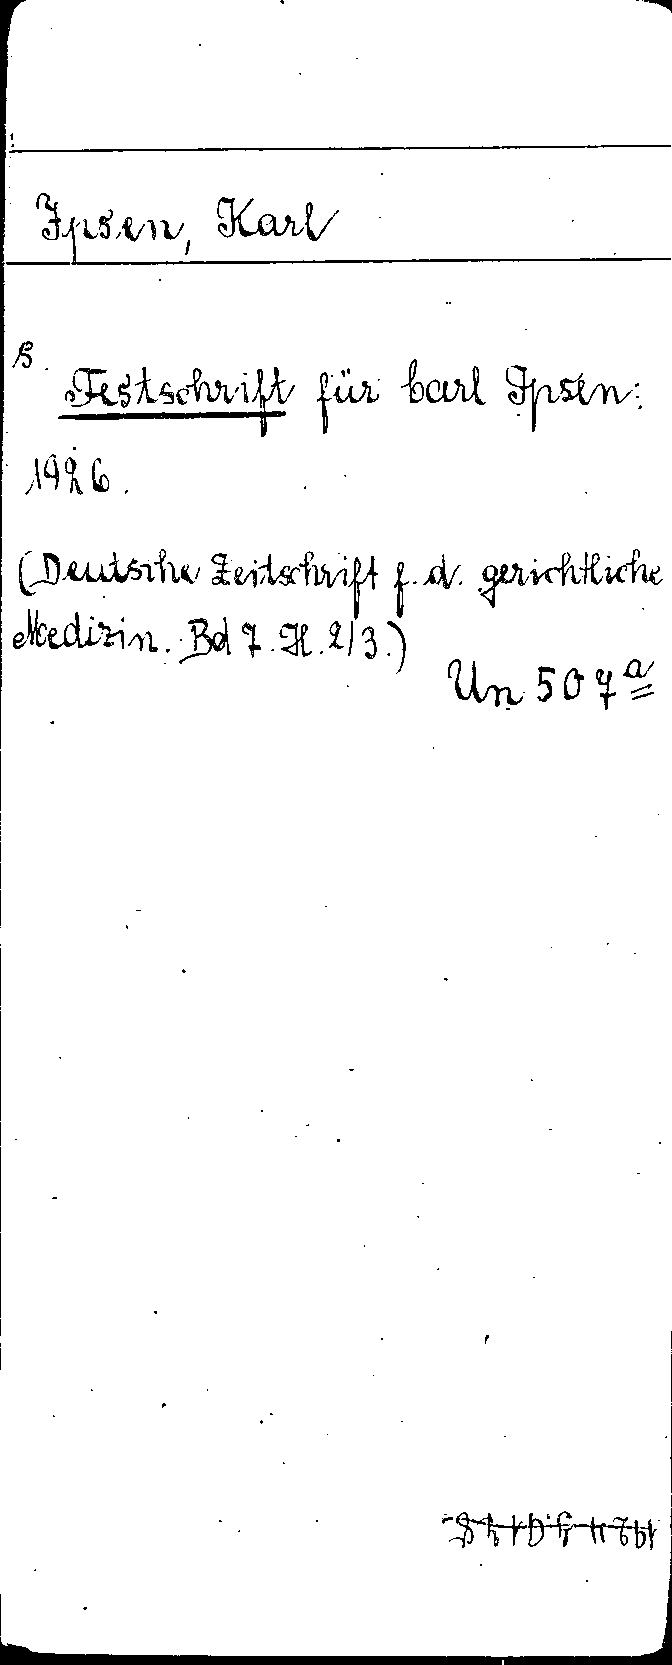 Ipsen, Karl
s.
Festschrift für Carl Ipsen:
1926.
(Deutsche Zeitschrift f. d. gerichtliche
Medizin. Bd 7. H. 2/3.)
Un 507ª